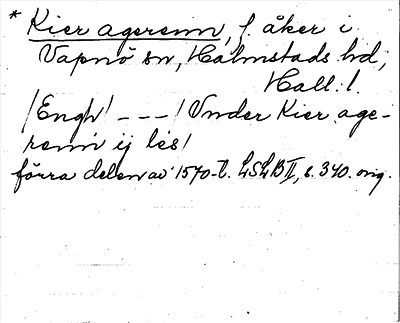 * Kier agerenn, f. åker i
Vapnö sn, Halmstads hd,
Hall. l.
/Engh/ --- / Vnder Kier age-
renn ij les/
förra delen av 1570-t. LSLB II, s. 340. orig.